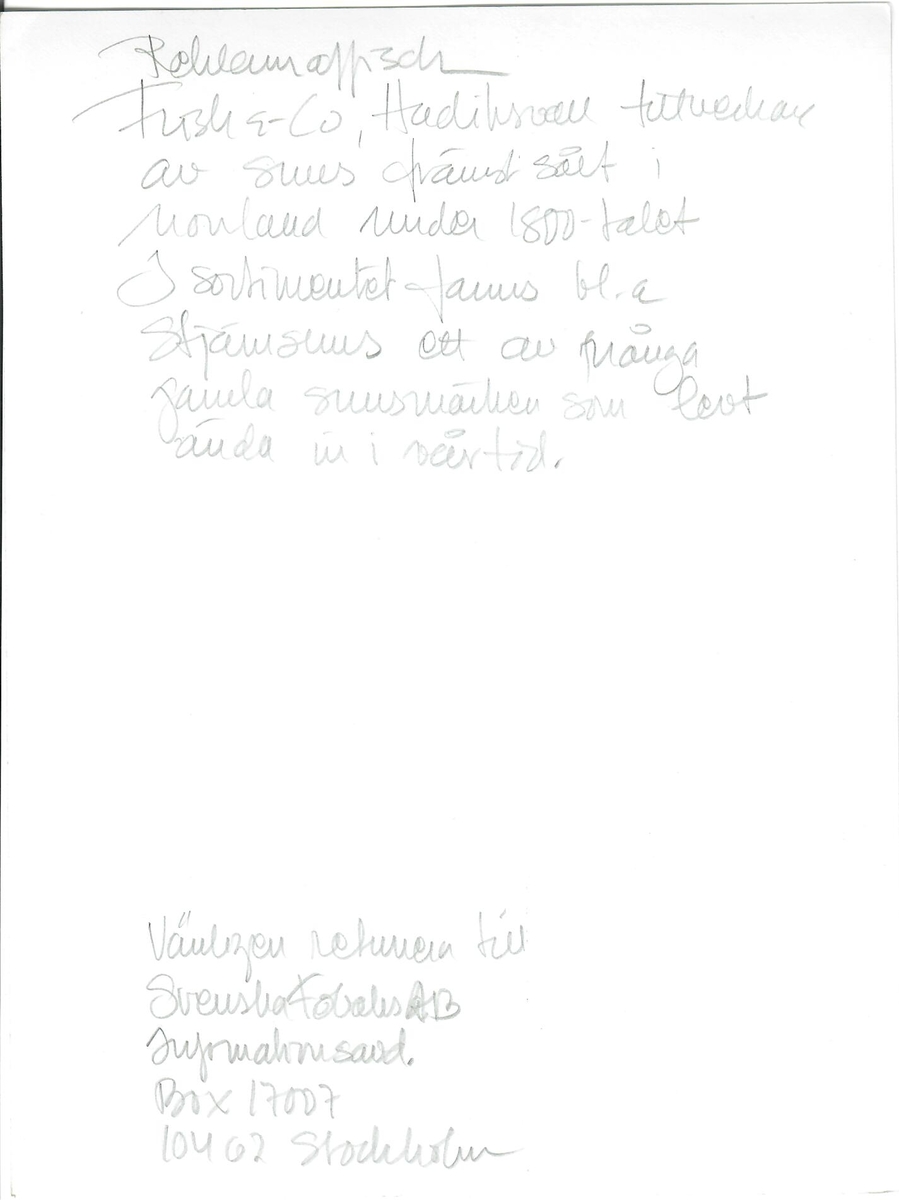 Reklamaffisch
Fisk & Co, Hudiksvall tillverkare
av snus främst sålt i
Norrland under 1800-talet
I sortimentet fanns bl.a
Stjärnsnus ett av många
gamla snusmärken som levt
ända in i vår tid.
Vänligen returnera till
Svenska Tobaks AB
Informationsavd.
Box 17007
104 62 Stockholm